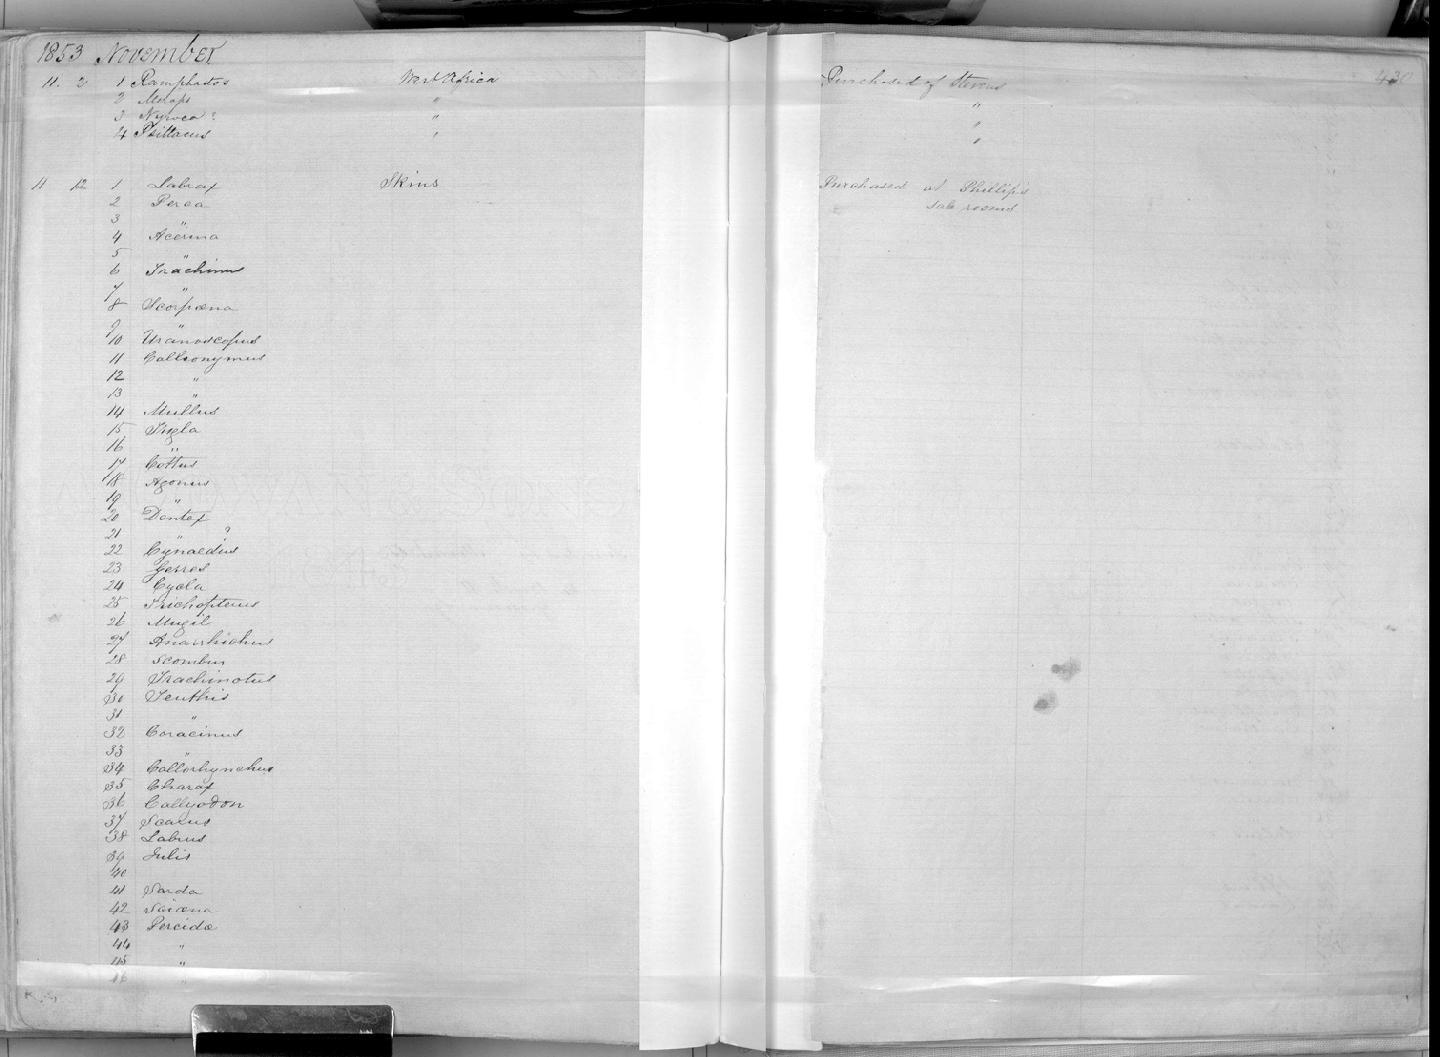 1853 November
11. 2 1 Ramphastos West Africa Purchased of Stevens 430
2 Merops " "
3 Nyroca ? " "
4 Psittacus " "
11 12 1 Labrax Skins Purchased at Phillip's
2 Perca sale rooms
3 "
4 Acerina
5 "
6 Trachinus
7 "
8 Scorpæna
9 "
10 Uranoscopus
11 Callionymus
12 "
13 "
14 Mullus
15 Trigla
16 "
17 Cottus
18 Agonus
19 "
20 Dentex
21 " ?
22 Cynaedus
23 Gerres
24 Cycla
25 Trichopterus
26 Mugil
27 Anarrhichus
28 Scomber
29 Trachinotus
30 Teuthis
31 "
32 Coracinus
33 "
34 Callorhynchus
35 Charax
36 Callyodon
37 Scarus
38 Labrus
39 Julis
40
41 Sarda
42 Sciæna
43 Percidæ
44 "
45 "
46 "